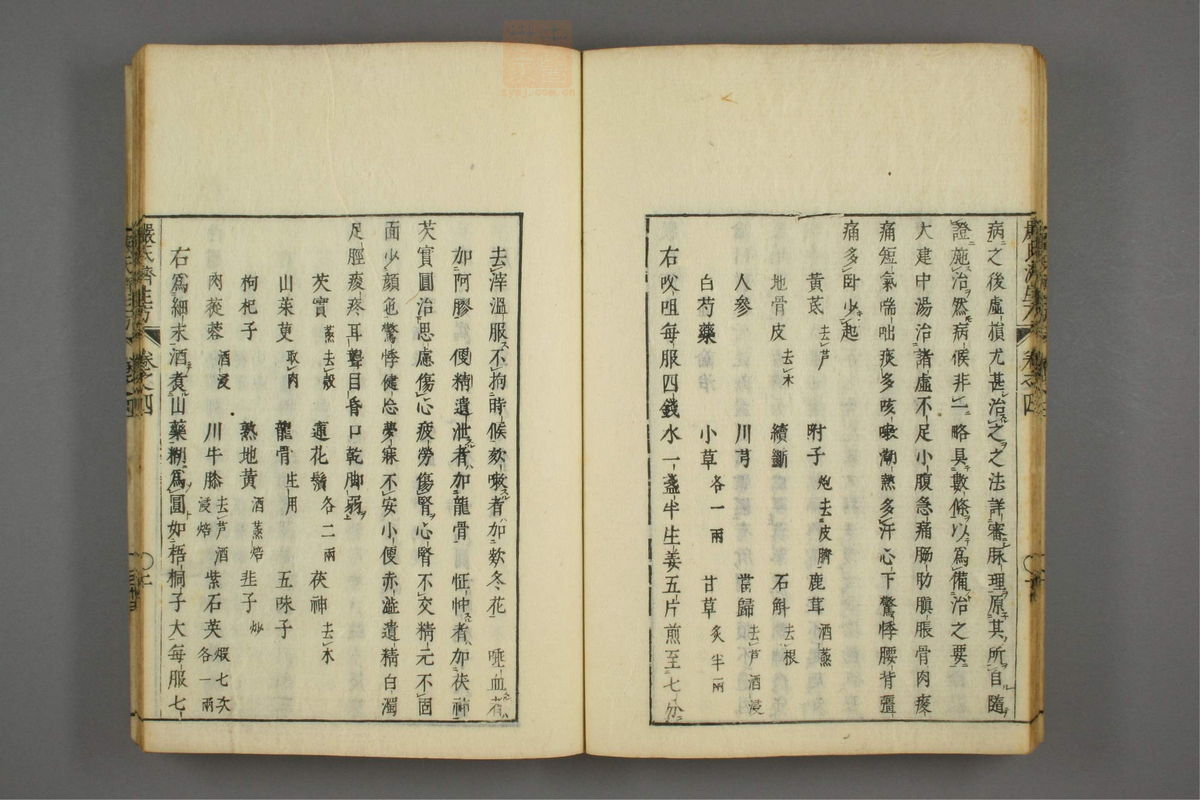 病之後虛損尤甚治之之法詳審脉理原其所自隨
證施治然病候非一略具數條以爲備治之要
大建中湯治諸虛不足小腹急痛脇肋䐜脹骨肉痠
痛短氣喘咄痰多咳嗽潮熱多汗心下驚悸腰背彊
痛多卧少起
黄芪去芦 附子炮去皮臍 鹿茸酒蒸
地骨皮去木 續斷 石斛去根
人參 川芎 當歸去芦酒浸
白芍藥 小草各一兩 甘草炙半兩
右㕮咀每服四錢水一盞半生姜五片煎至七分
去滓溫服不拘時候欬嗽者加欵冬花 唾血者
加阿膠 便精遺泄者加龍骨 怔忡者加茯神
芡實圓治思慮傷心疲勞傷腎心腎不交精元不固
面少顔色驚悸健忘夢寐不安小便赤澁遺精白濁
足脛痠疼耳聾目昏口乾脚弱
芡實蒸去殼 蓮花鬚各二兩 茯神去木
山茱萸取肉 龍骨生用 五味子
枸杞子 熟地黄酒蒸焙 韭子炒
肉蓯蓉酒浸 川牛膝去芦酒浸焙 紫石英煆七次各一兩
右爲細末酒煮山藥糊爲圓如梧桐子大每服七
嚴氏濟生方 卷之四